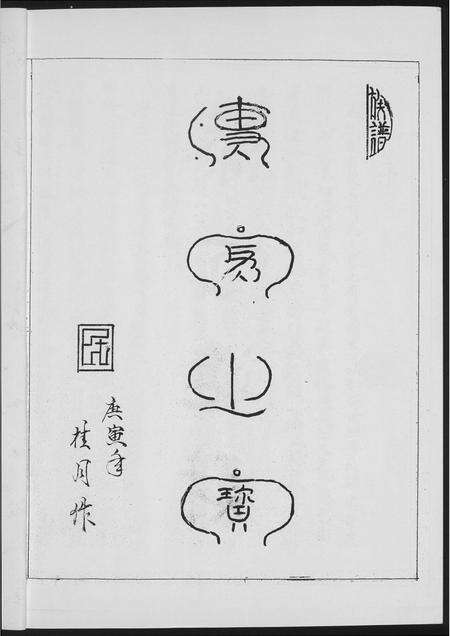 族譜
傳家之寶
庚寅年
桂月作